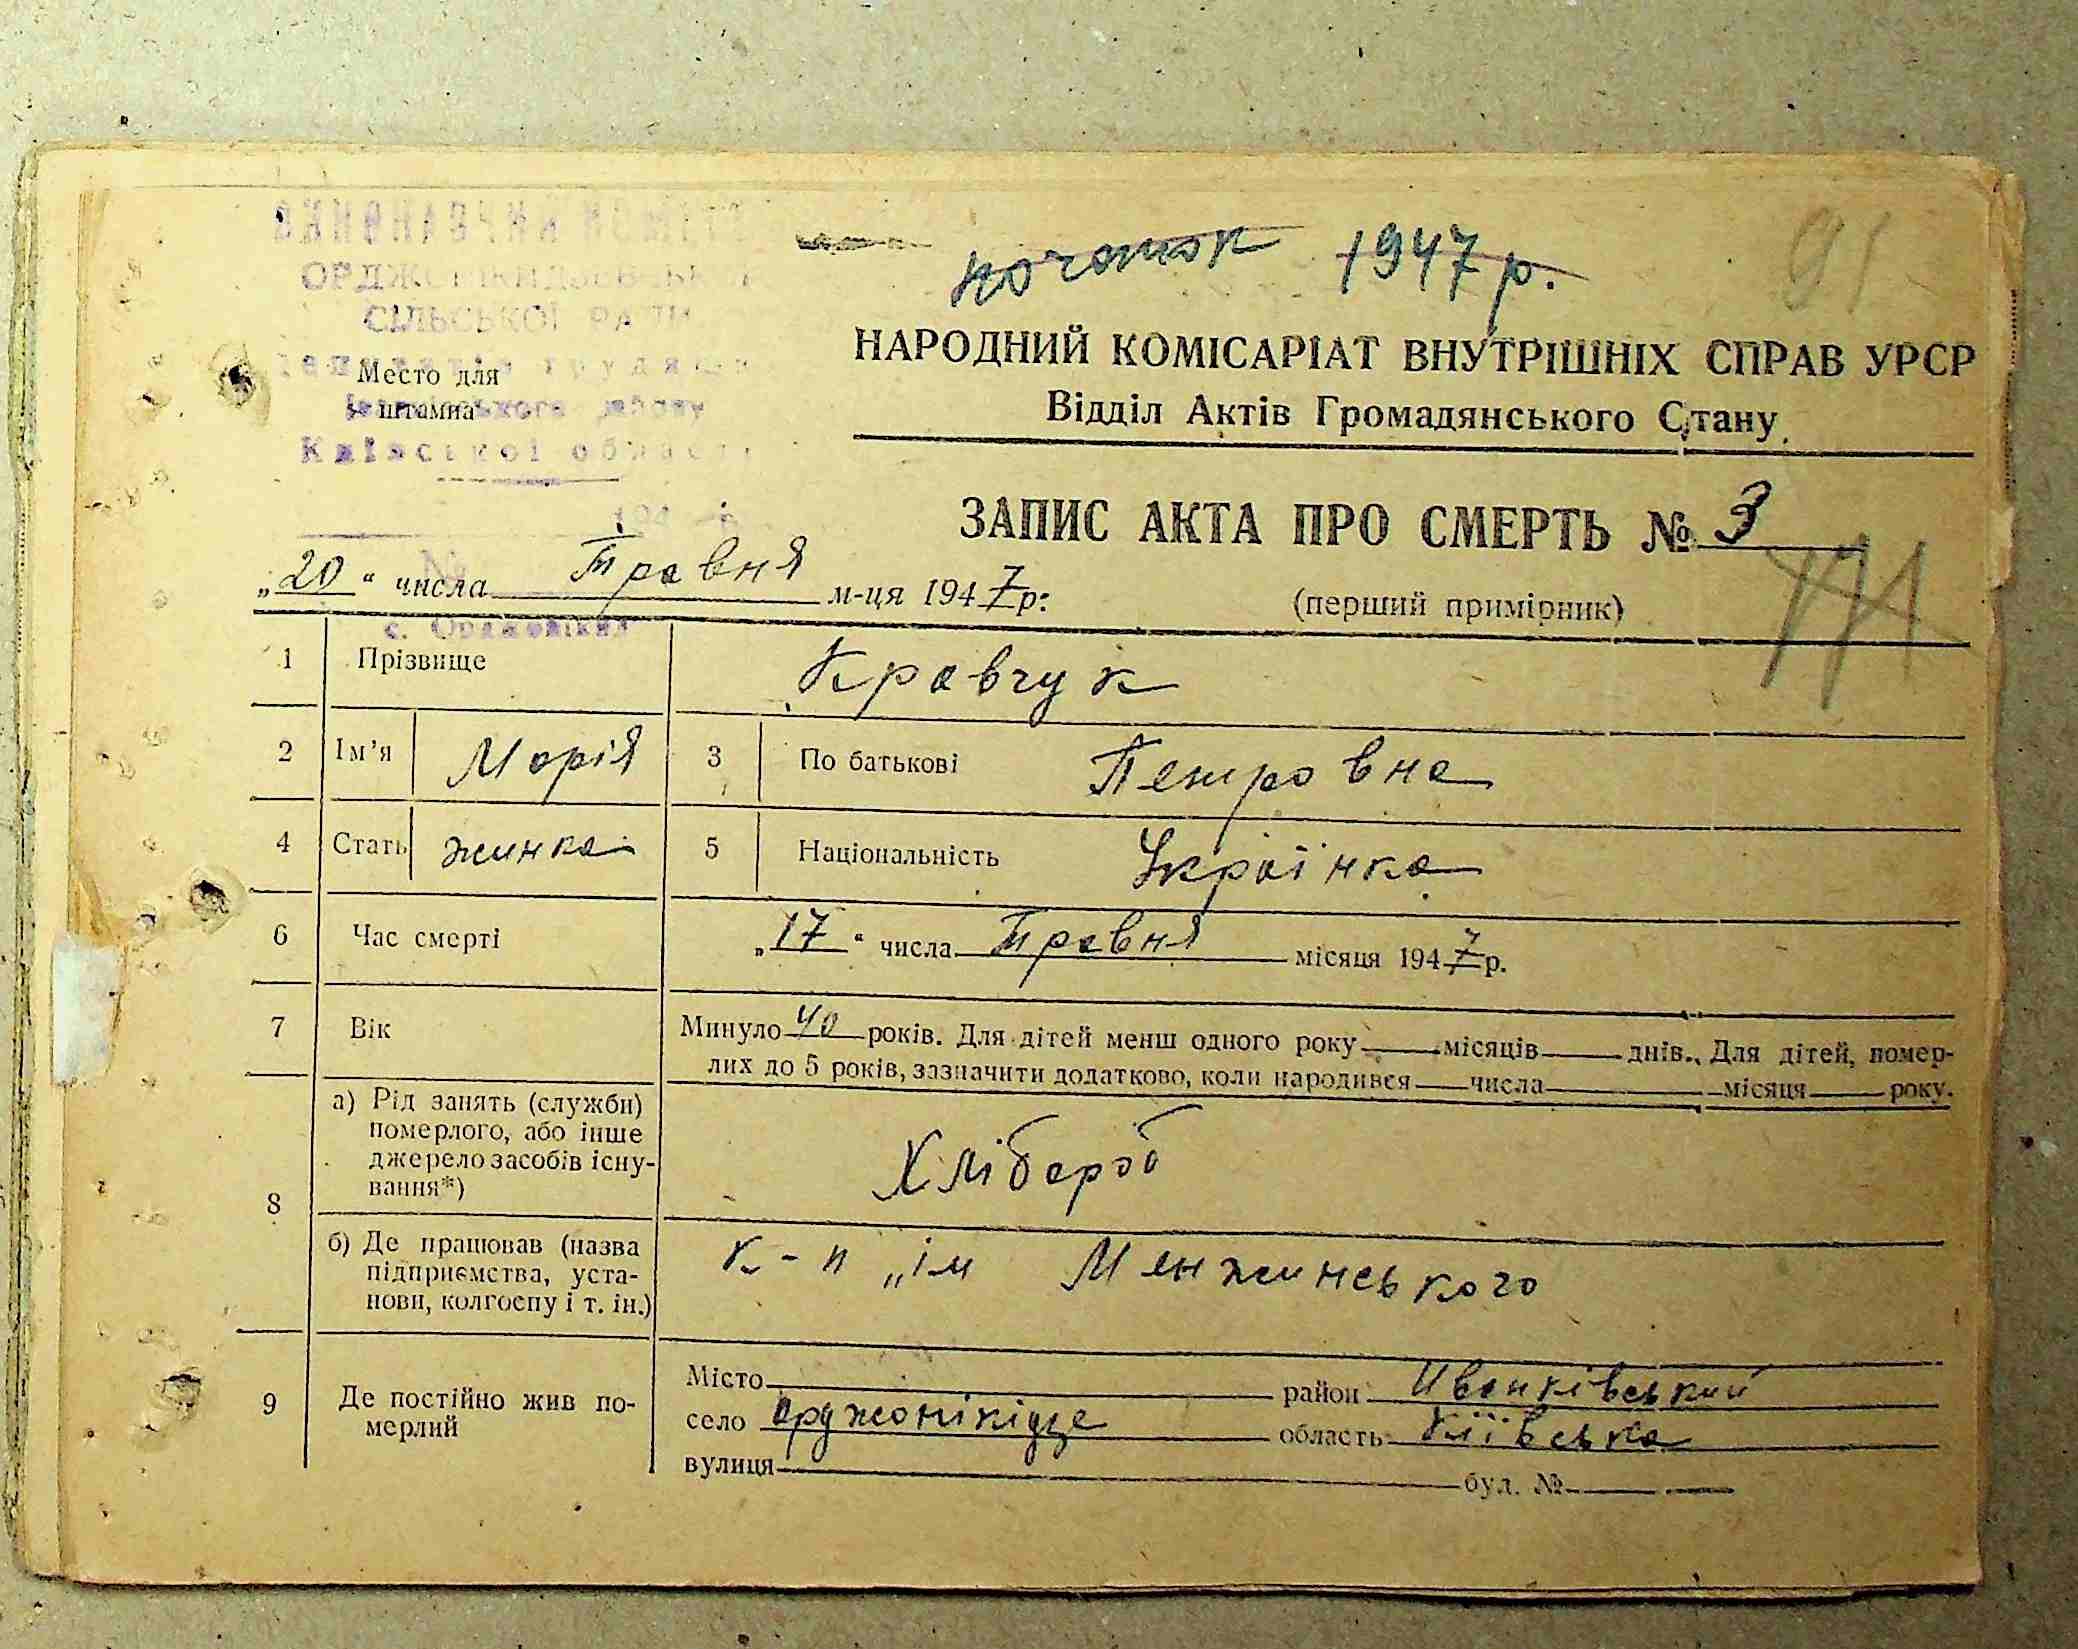 початок 1947 р.
91
ВИКОНАВЧИЙ КОМІТЕТ
ОРДЖОНІКИДЗЕВСЬКОЇ
СІЛЬСЬКОЇ РАДИ
Депутатів трудящ
Место для
штампа
Іванківського району
Київської області
194 р.
№
с. Орджонікід
НАРОДНИЙ КОМІСАРІАТ ВНУТРІШНІХ СПРАВ УРСР
Відділ Актів Громадянського Стану
ЗАПИС АКТА ПРО СМЕРТЬ № 3
„20“ числа Травня м-ця 1947 р.
(перший примірник)
1 Прізвище Кравчук
2 Ім'я Марія 3 По батькові Петровна
4 Стать жинка 5 Національність Українка
6 Час смерті „17“ числа Травня місяця 1947 р.
7 Вік Минуло 40 років. Для дітей менш одного року місяців днів. Для дітей, помер-
лих до 5 років, зазначити додатково, коли народився числа місяця року.
8 а) Рід занять (службн)
померлого, або інше
джерело засобів існу-
вання*)
Хлібороб
б) Де працював (назва
підприємства, уста-
нови, колгоспу і т. ін.)
к-п „ім Менжинського
9 Де постійно жив по-
мерлий
Місто район Иванківський
село Орджонікідзе область Київська
вулиця буд. №